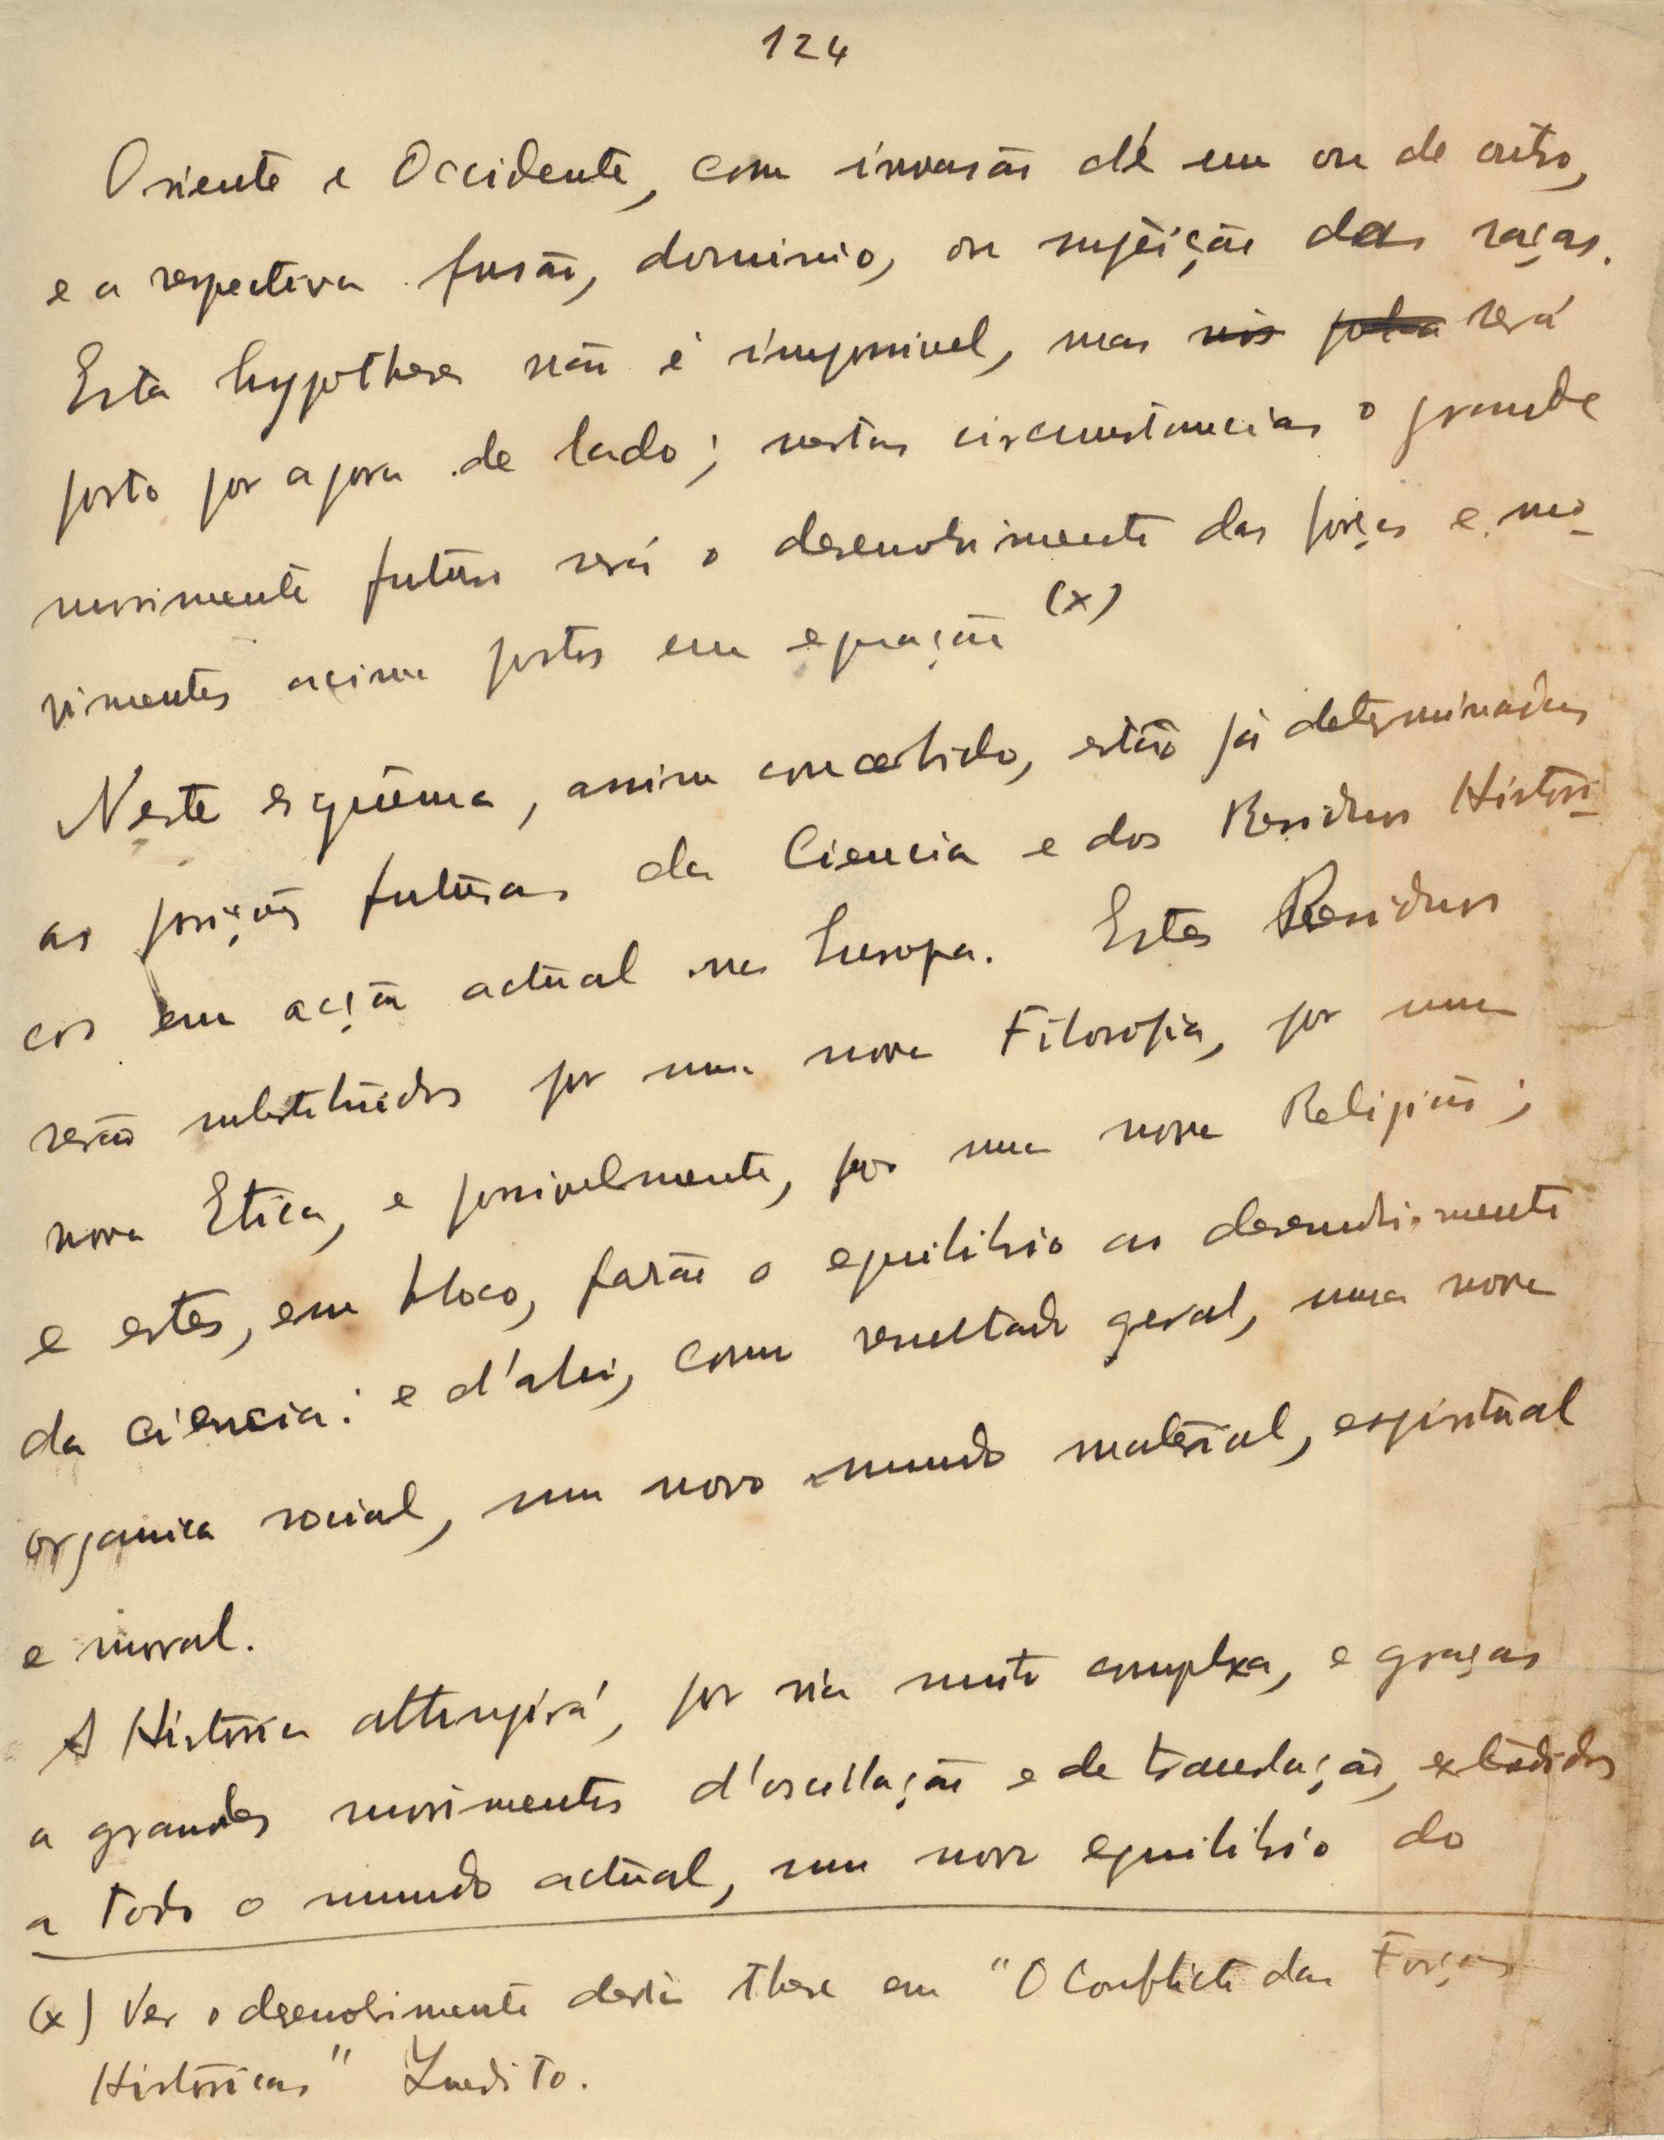 124
Oriente e Occidente, com invasão de um ou de outro,
e a respectiva fusão, dominio, ou sujeição das raças.
Esta hypothese não é impossivel, mas será
posto por agora de lado; nestas circumstancias o grande
movimento futuro será o desenvolvimento das forças e mo-
vimentos acima postos em equação (x)
Neste esquema, assim concebido, estão já determinadas
as posições futuras da Ciencia e dos Residuos Histori-
cos em acção actual na Europa. Estes Residuos
serão substituidos por uma nova Filosofia, por uma
nova Etica, e possivelmente, por uma nova Religião;
e estes, em bloco, farão o equilibrio ao desenvolvimento
da ciencia: e d'ahi, como resultado geral, uma nova
organica social, um novo mundo material, espiritual
e moral.
A Historia attingirá, por via muito complexa, e graças
a grandes movimentos d'oscillação e de translação,
a todo o mundo actual, um novo equilibrio do
(x) Ver o desenvolvimento desta these em "O Conflicto das Forças
Historicas" Inedito.